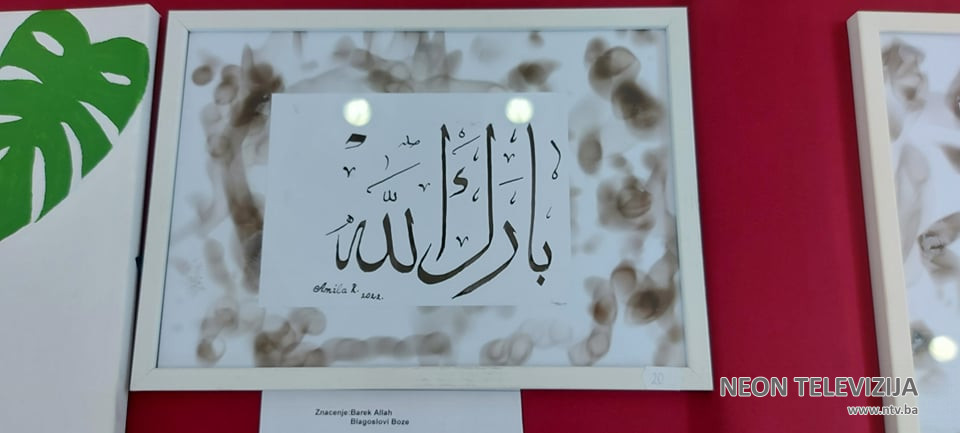 بارك الله
Amila R.
2022.
20
Znacenje:Barek Allah
Blagoslovi Boze
NEON TELEVIZIJA
www.ntv.ba